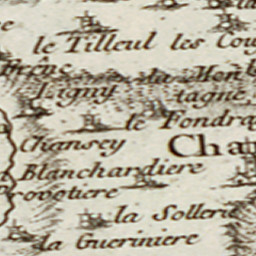 le Tilleul les Cou
la Mon
Ligny tagne,
le Fondra
Chansey Cha
Blanchardiere
la Sollerie
la Gueriniere